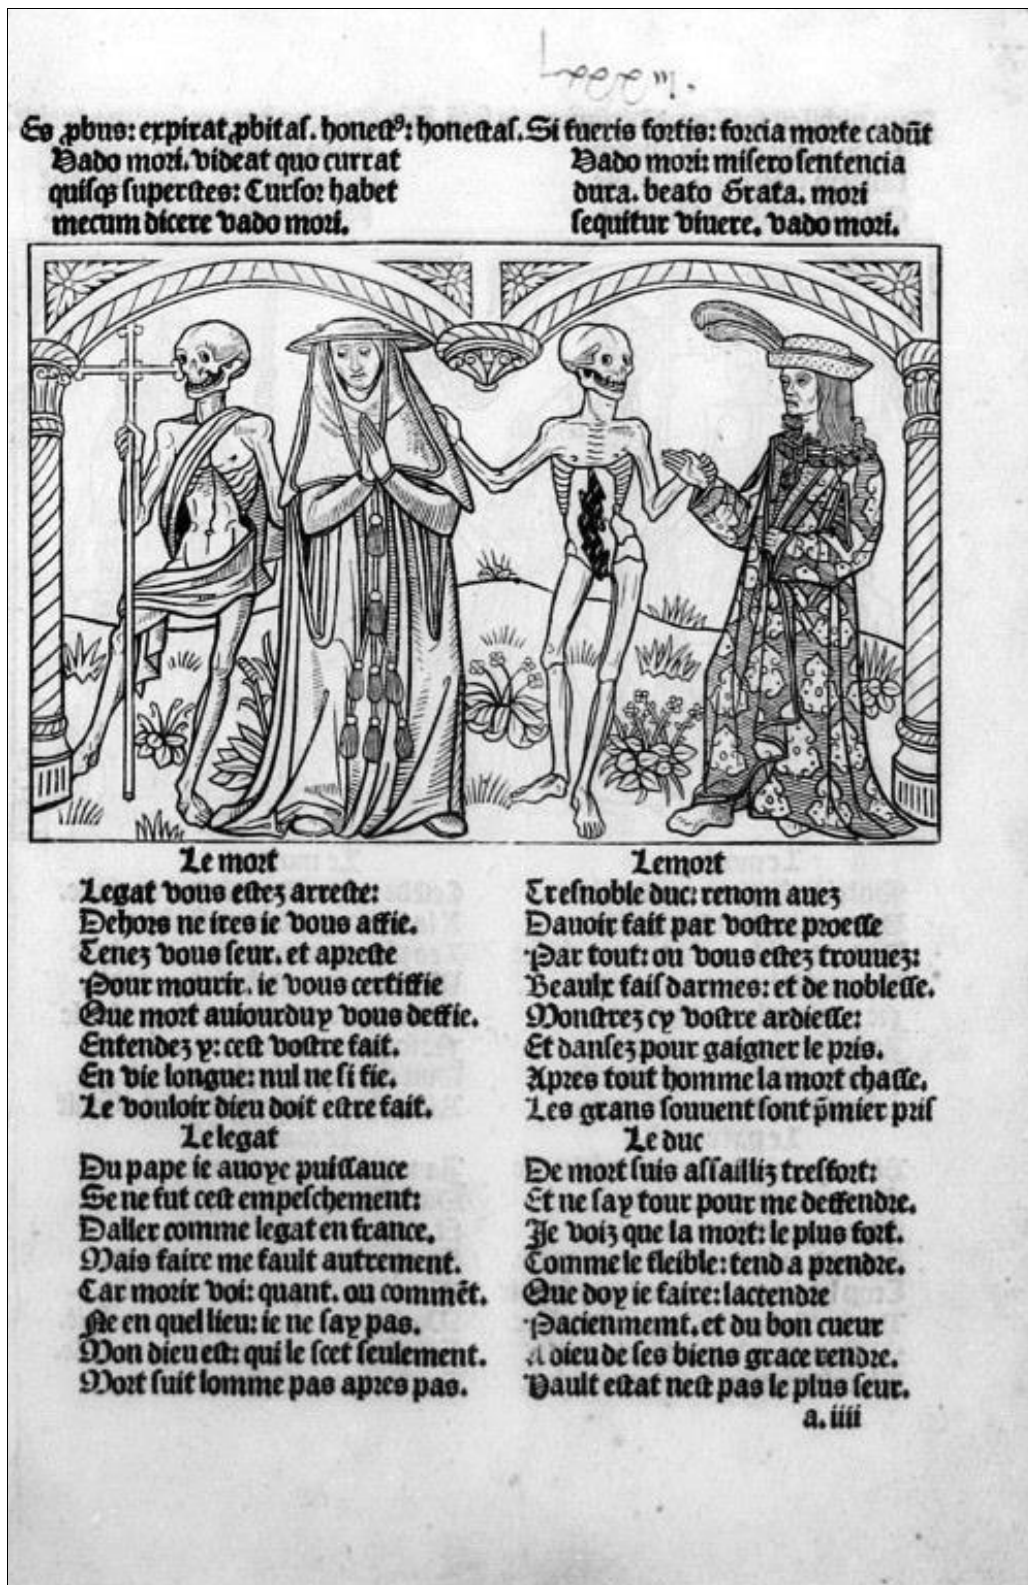 Es ꝓbus: expirat ꝓbitas. honestꝰ: honestas. Si fueris fortis: forcia morte cadūt
Vado mori. videat quo currat
quisqꝫ superstes: Cursor habet
mecum dicere vado mori.
Vado mori: misero sentencia
dura. beato Grata. mori
sequitur viuere. vado mori.
Le mort
Legat vous estez arreste:
Dehors ne ires ie vous affie.
Tenez vous seur. et apreste
Pour mourir. ie vous certiffie
Que mort auiourduy vous deffie.
Entendez y: cest vostre fait.
En vie longue: nul ne si fie.
Le vouloir dieu doit estre fait.
Le legat
Du pape ie auoye puissance
Se ne fut cest empeschement:
Daller comme legat en france.
Mais faire me fault autrement.
Car morir voi: quant. ou commēt.
Ne en quel lieu: ie ne say pas.
Mon dieu est: qui le scet seulement.
Mort suit lomme pas apres pas.
Le mort
Tresnoble duc: renom auez
Dauoir fait par vostre proesse
Par tout: ou vous estez trouuez:
Beaulx fais darmes: et de noblesse.
Monstrez cy vostre ardiesse:
Et dansez pour gaigner le pris.
Apres tout homme la mort chasse.
Les grans souuent sont p̄mier pris
Le duc
De mort suis assailliz tresfort:
Et ne say tour pour me deffendre.
Je voiz que la mort: le plus fort.
Comme le fleible: tend a prendre.
Que doy ie faire: lactendre
Pacienmemt. et du bon cueur
A dieu de ses biens grace rendre.
Hault estat nest pas le plus seur.
a. iiii